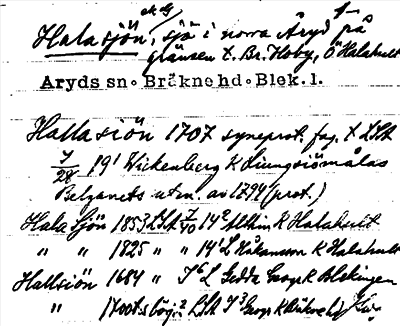 Halasjön, sjö i norra Åryd på
gränsen t. Br. Hoby, Ö Halahult
Aryds sn. Bräkne hd. Blek. l.
Hallasiön 1707 syneprot. fag. t LSA
7/28 19¹ Wickenberg K Liungsiömålas
Belganets utm. av 1794 (prot.)
Hala Sjön 1853 LSA 7/40 14² Ahlin K Halahult
" " 1825 " " 14¹ L Håkansson K Halahult
Hallsiön 1684 " L Gedda Geogr K Blekingen
" 1700 LSA Geogr K Bräkne hd